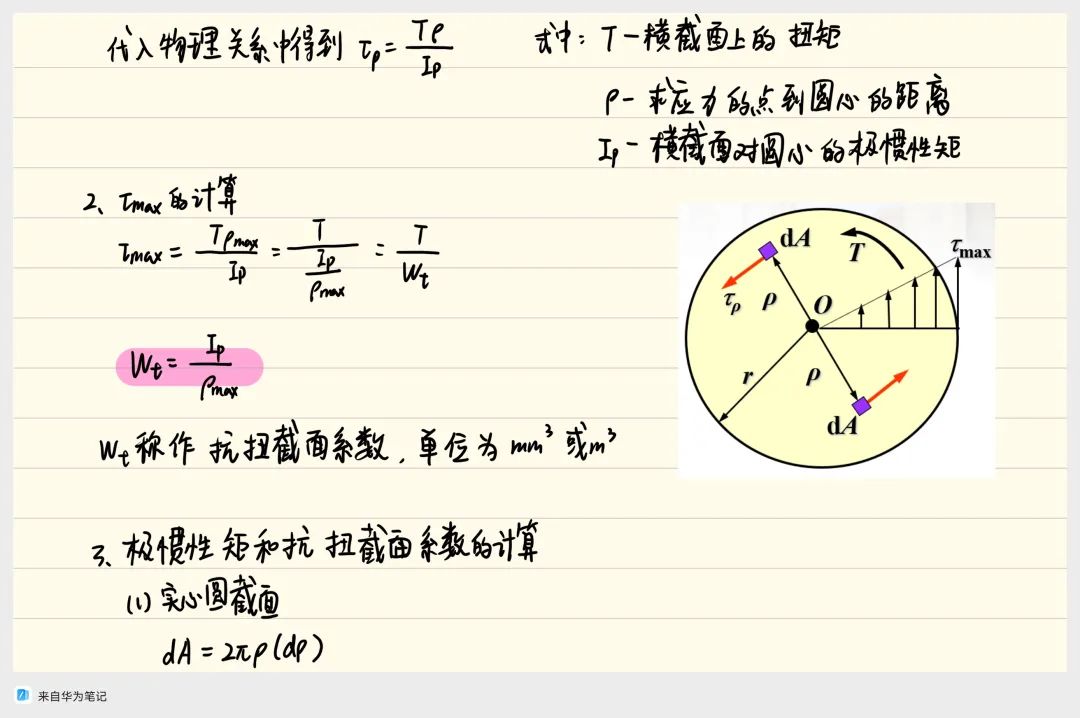 代入物理关系中得到 τρ = Tρ/Ip
式中: T — 横截面上的扭矩
ρ — 求应力的点到圆心的距离
Ip — 横截面对圆心的极惯性矩
2、τmax的计算
τmax = Tρmax/Ip = T/(Ip/ρmax) = T/Wt
Wt = Ip/ρmax
Wt称作抗扭截面系数, 单位为 mm³ 或m³
dA
T
τmax
τρ
ρ
O
r
ρ
dA
3、极惯性矩和抗扭截面系数的计算
(1) 实心圆截面
dA = 2πρ(dρ)
来自华为笔记